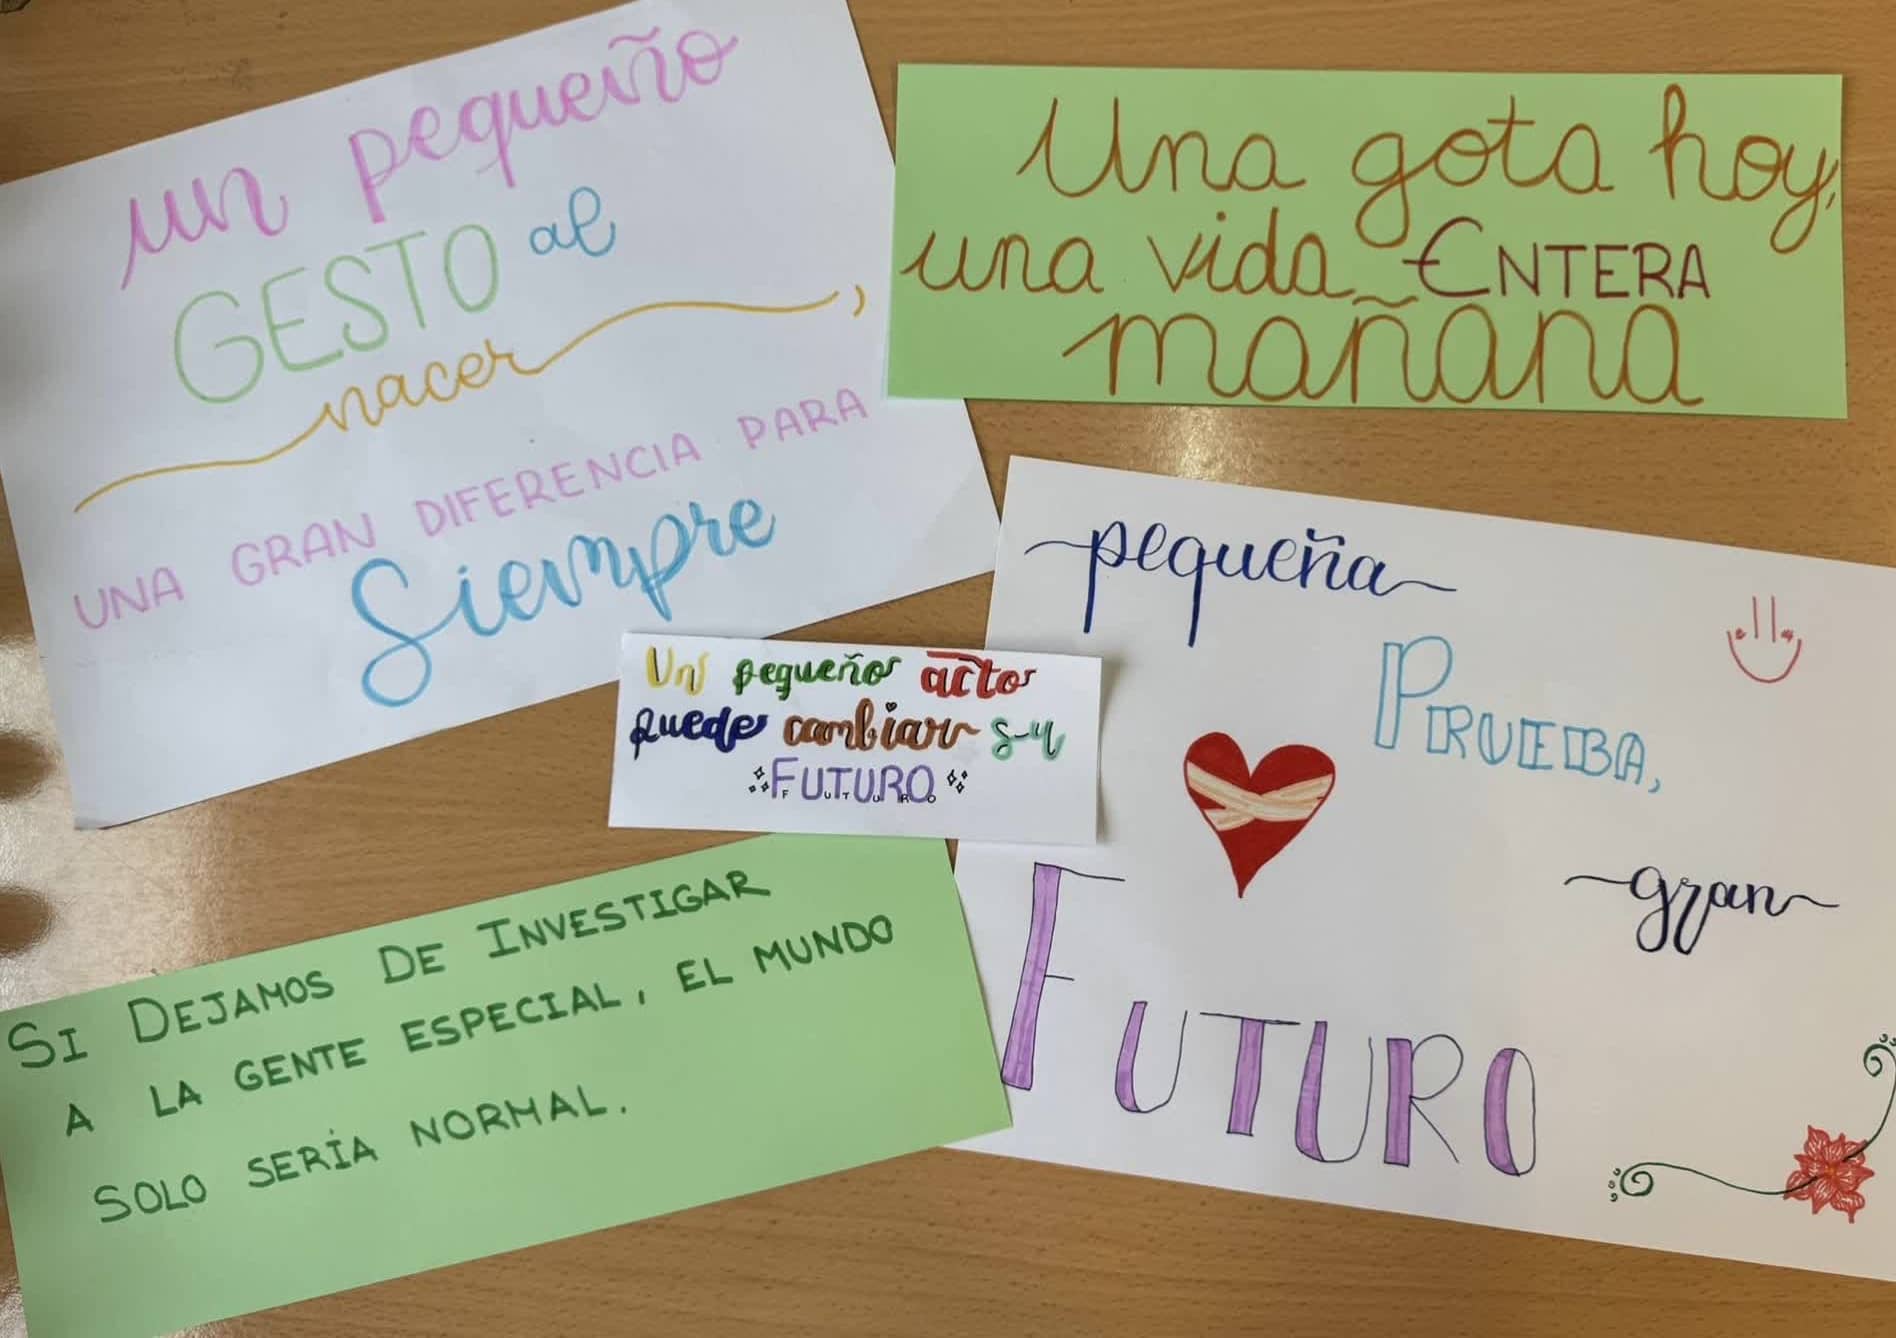 un pequeño
GESTO al
nacer,
UNA GRAN DIFERENCIA PARA
Siempre
Una gota hoy,
una vida ENTERA
mañana
Un pequeño acto
puede cambiar su
FUTURO
FUTURO
pequeña
PRUEBA,
gran
FUTURO
SI DEJAMOS DE INVESTIGAR
A LA GENTE ESPECIAL, EL MUNDO
SOLO SERÍA NORMAL.